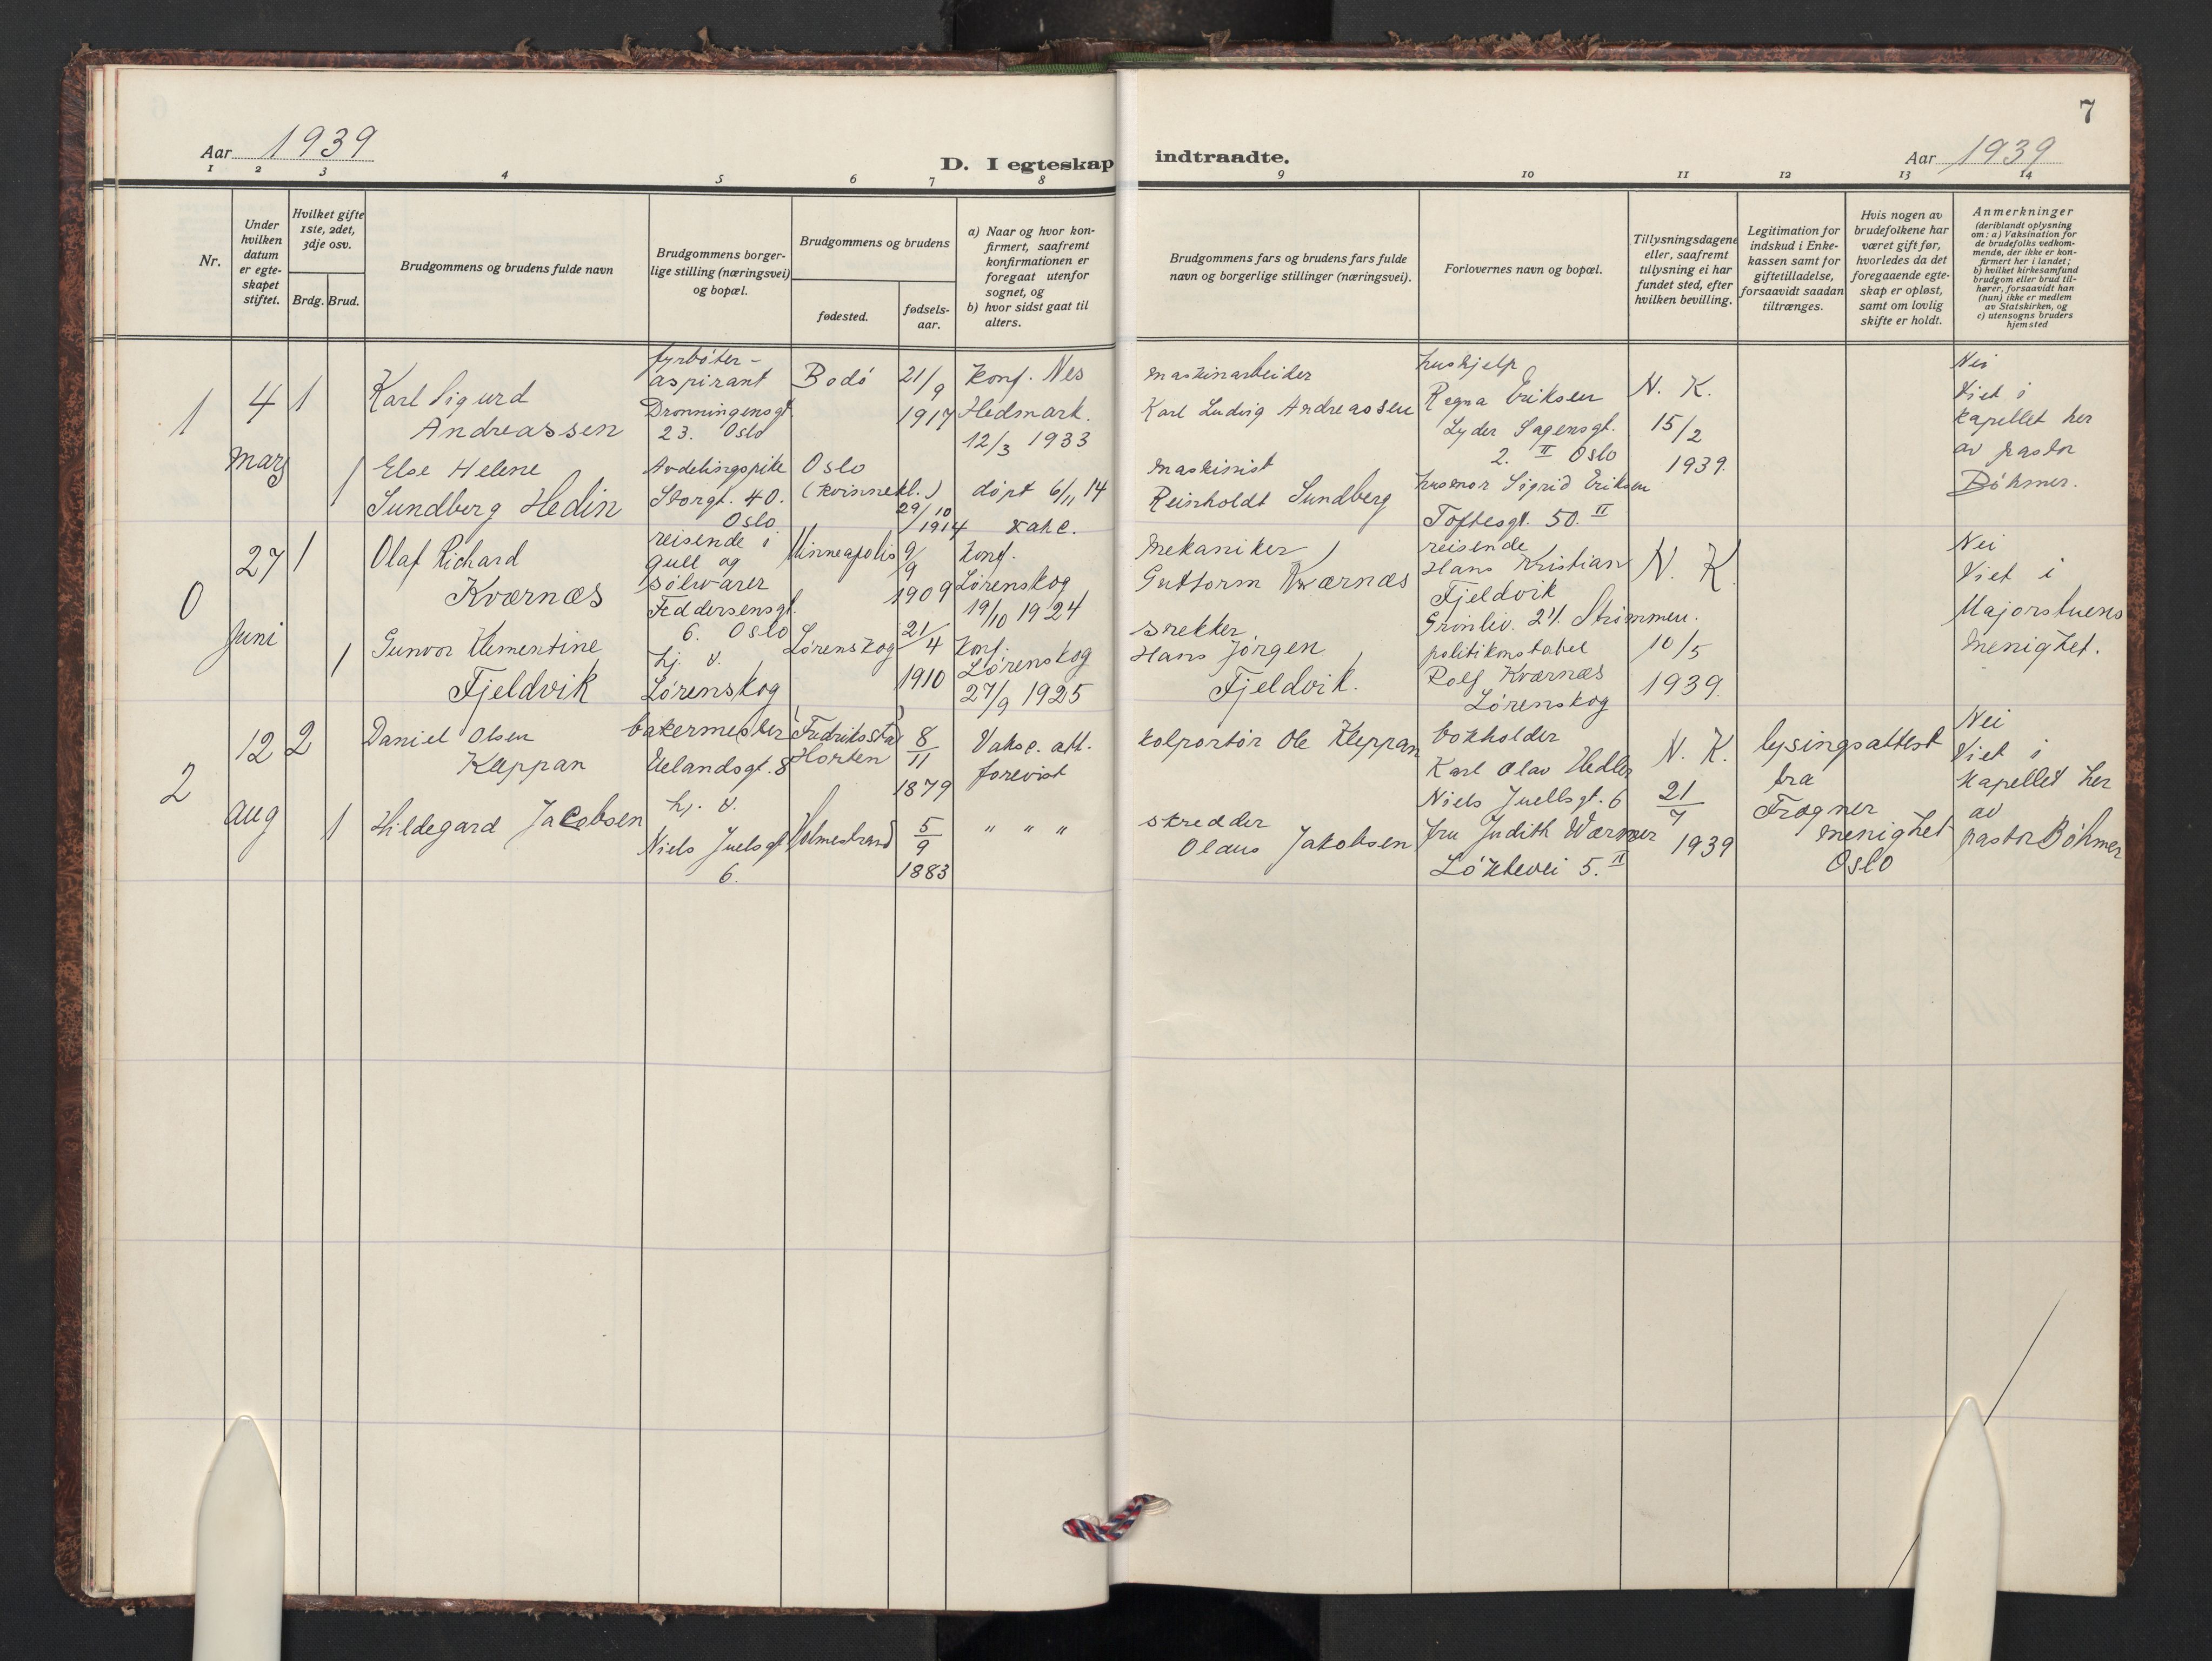 Aar 1939
D. I egteskap indtraadte.
Aar 1939
7
1 2 3 4 5 6 7 8 9 10 11 12 13 14
Nr.
Under
hvilken
datum
er egte-
skapet
stiftet.
Hvilket gifte
1ste, 2det,
3dje osv.
Brdg. Brud.
Brudgommens og brudens fulde navn
Brudgommens borger-
lige stilling (næringsvei)
og bopæl.
Brudgommens og brudens
fødested.
fødsels-
aar.
a) Naar og hvor kon-
firmert, saafremt
konfirmationen er
foregaat utenfor
sognet, og
b) hvor sidst gaat til
alters.
Brudgommens fars og brudens fars fulde
navn og borgerlige stillinger (næringsvei).
Forlovernes navn og bopæl.
Tillysningsdagene
eller, saafremt
tillysning ei har
fundet sted, efter
hvilken bevilling.
Legitimation for
indskud i Enke-
kassen samt for
giftetilladelse,
forsaavidt saadan
tiltrænges.
Hvis nogen av
brudefolkene har
været gift før,
hvorledes da det
foregaaende egte-
skap er opløst,
samt om lovlig
skifte er holdt.
Anmerkninger
(deriblandt oplysning
om: a) Vaksination for
de brudefolks vedkom-
mende, der ikke er kon-
firmert her i landet;
b) hvilket kirkesamfund
brudgom eller brud til-
hører, forsaavidt han
(hun) ikke er medlem
av Statskirken, og
c) utensogns bruders
hjemsted
1
4
mars
1
Karl Sigurd
Andreassen
fyrbøter-
aspirant
Dronningensgt.
23. Oslo
Bodø
21/9
1917
Konf. Nes
Hedmark.
12/3 1933
maskinarbeider
Karl Ludvig Andreassen
hushjelp
Ragna Eriksen
Lyder Sagensgt.
2. II Oslo
N. K.
15/2
1939.
Nei
Viet i
kapellet her
av pastor
Bøhmer.
1
Else Helene
Sundberg Hedin
Avdelingspike
Storgt. 40.
Oslo
Oslo
(Kvinnekl.)
29/10
1914
døpt 6/11 14
vakc.
maskinist
Reinholdt Sundberg
husmor Sigrid Eriksen
Toftesgt. 50. II
0
27
Juni
1
Olaf Richard
Kværnæs
reisende i
gull og
sølvvarer
Feddersensgt.
6. Oslo
Minneapolis
9/9
1909
Konf.
Lørenskog
19/10 1924
Mekaniker
Guttorm Kværnæs
reisende
Hans Kristian
Fjeldvik
Grønliv. 24. Strømmen.
N. K.
10/5
1939.
Nei
Viet i
Majorstuens
menighet.
1
Gunvor Klementine
Fjeldvik
hj. v.
Lørenskog
Lørenskog
21/4
1910
Konf.
Lørenskog
27/9 1925
Hans Jørgen
Fjeldvik.
politikonstabel
Rolf Kværnæs
Lørenskog
2
12
aug
2
Daniel Olsen
Kleppan
bakermester
Uelandsgt. 8
Fredriksstad
Horten
8/11
1879
Vaksc. att.
forevist
kolportør Ole Kleppan
bokholder
Karl Olav Hedler
Niels Juellsgt. 6
N. K.
21/7
1939
lysingsattest
fra
Frogner
menighet
Oslo
Nei
Viet i
kapellet her
av
pastor Bøhmer
1
Hildegard Jacobsen
hj. v.
Niels Juelsgt.
6.
Holmestrand
5/9
1883
" " "
skredder
Olaus Jakobsen
fru Judith Wærmer
Løktevei 5. II